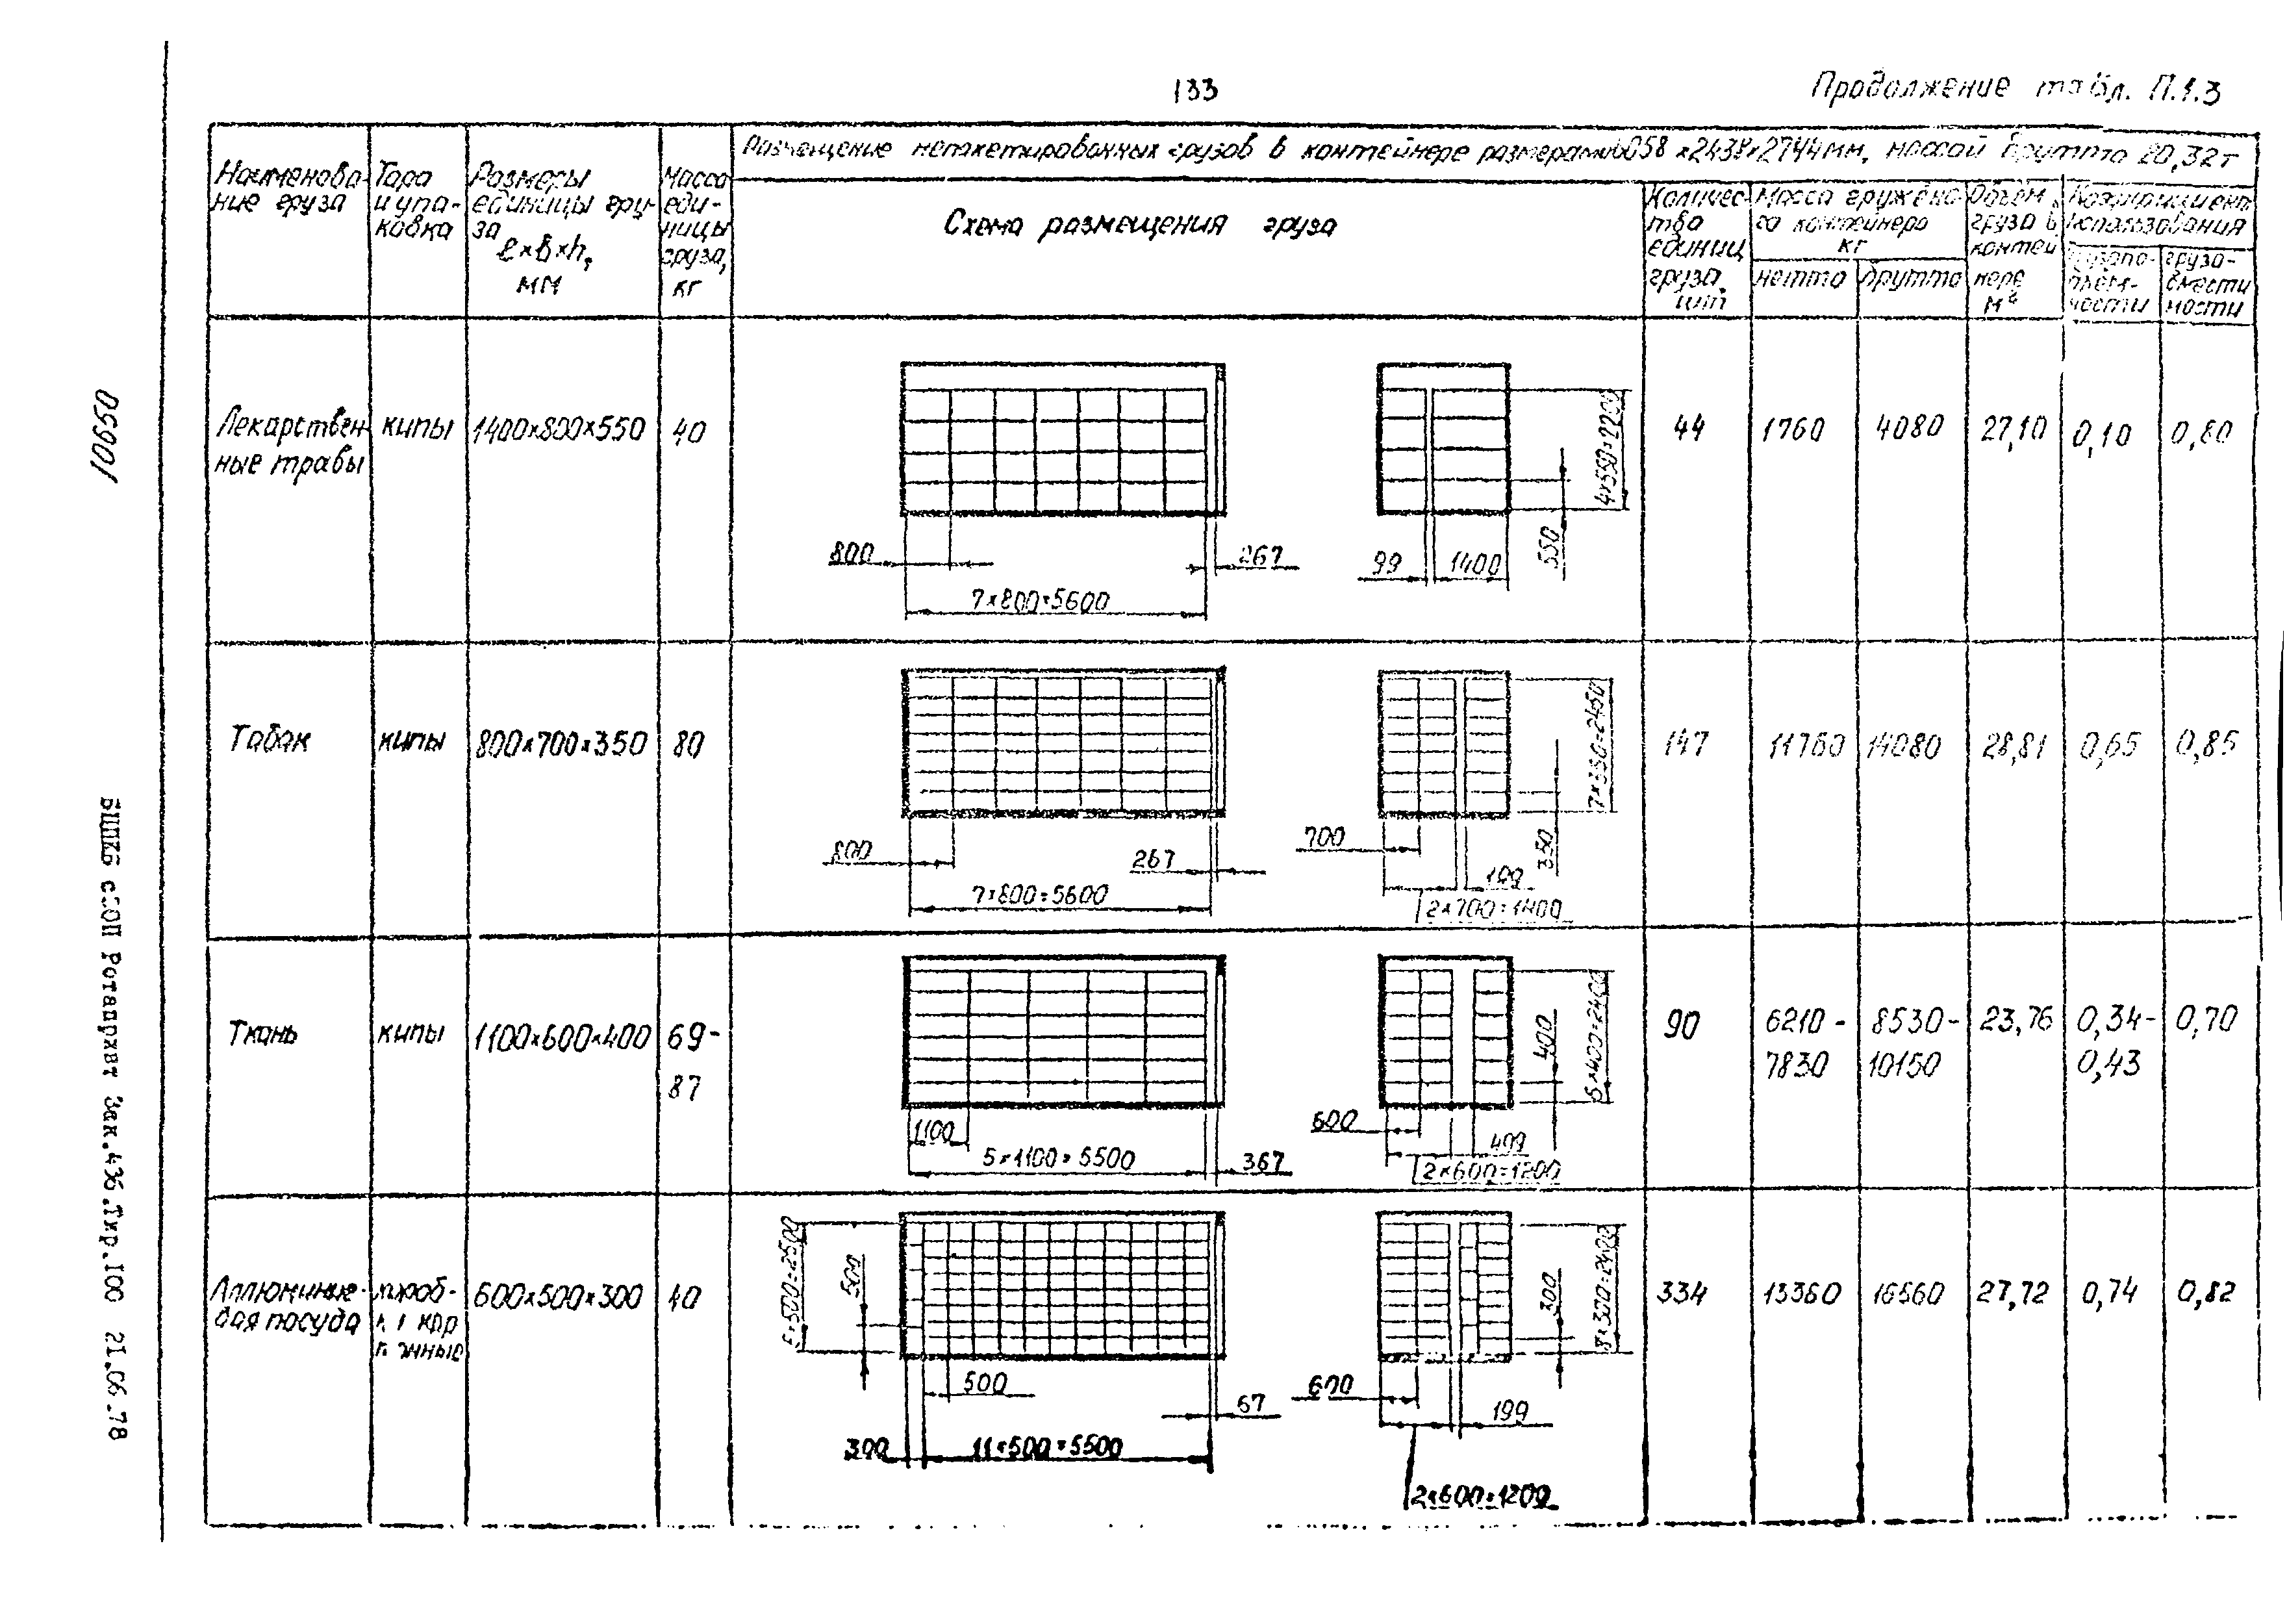 133
Продолжение табл. П.1.3
Наименова-
ние груза
Тара
и упа-
ковка
Размеры
единицы гру-
за
l×b×h,
мм
Масса
еди-
ницы
груза,
кг
Размещение непакетированных грузов в контейнере размерами 6058×2438×2744мм, массой брутто 20,32т
Схема размещения груза
Количес-
тво
единиц
груза,
шт
Масса гружёно-
го контейнера
кг
нетто
брутто
Объем
груза в
контей
нере
Коэффициент
использования
грузопо-
ъём-
ности
грузо-
вмести
мости
Лекарствен-
ные травы
кипы
1400×800×550
40
800
267
7×800=5600
99
1400
550
4×550=2200
44
1760
4080
27,10
0,10
0,80
Табак
кипы
800×700×350
80
800
267
7×800=5600
700
199
2×700=1400
350
7×350=2450
147
11760
14080
28,81
0,65
0,85
Ткань
кипы
1100×600×400
69-
87
1100
5×1100=5500
367
600
499
2×600=1200
400
6×400=2400
90
6210-
7830
8530-
10150
23,76
0,34-
0,43
0,70
Аллюминие-
вая посуда
600×500×300
40
5×500=2500
500
500
67
300
11×500=5500
600
199
2×600=1200
300
8×300=2400
334
13360
16560
27,72
0,74
0,82
10650
БЦПКБ с.ОП Ротапринт Зак.436.Тир.100 21.06.78